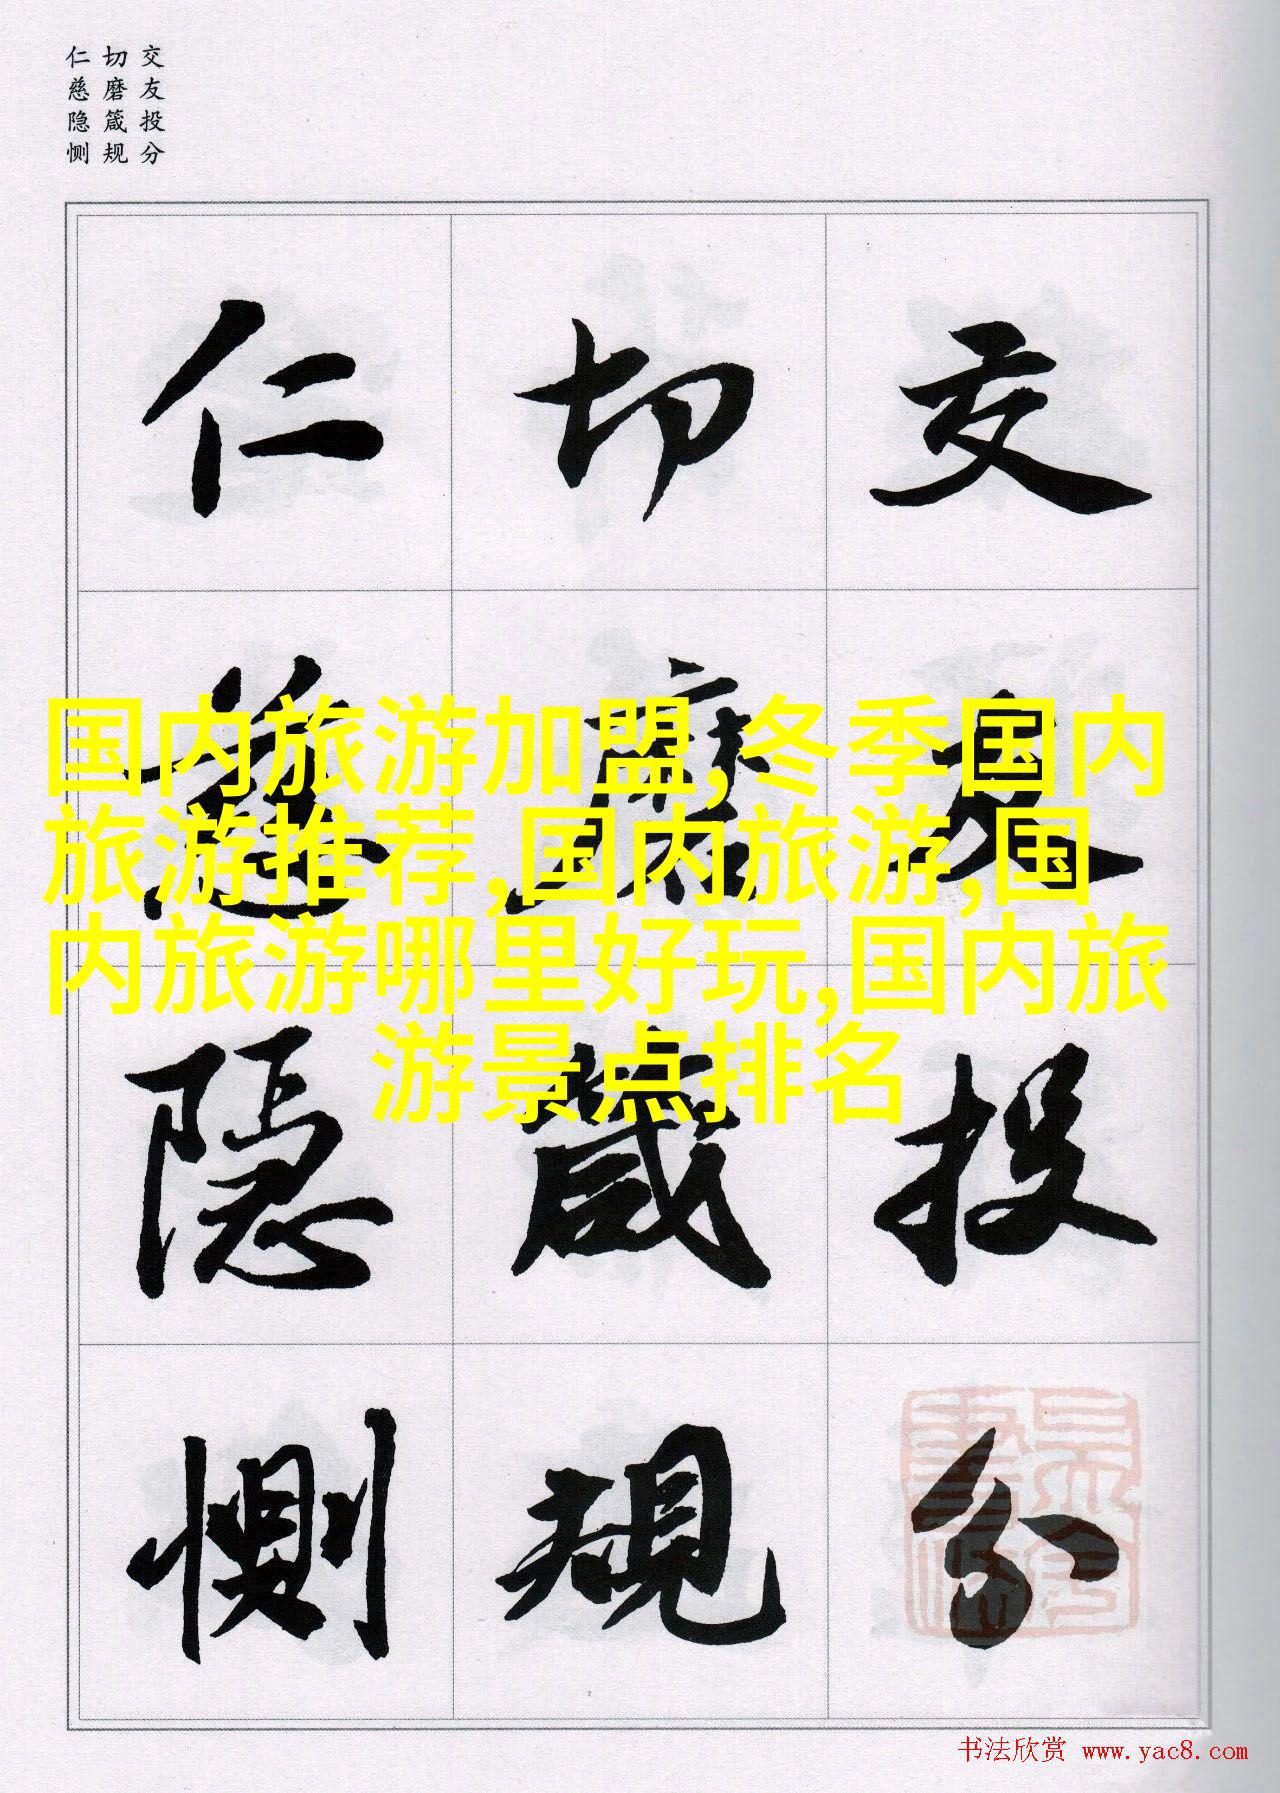 交友投分
切磨箴规
仁慈隐恻
交友投分
切磨箴规
仁慈隐恻
国内旅游加盟,冬季国内
旅游推荐,国内旅游,国
内旅游哪里好玩,国内旅
游景点排名
书法欣赏 www.yac8.com